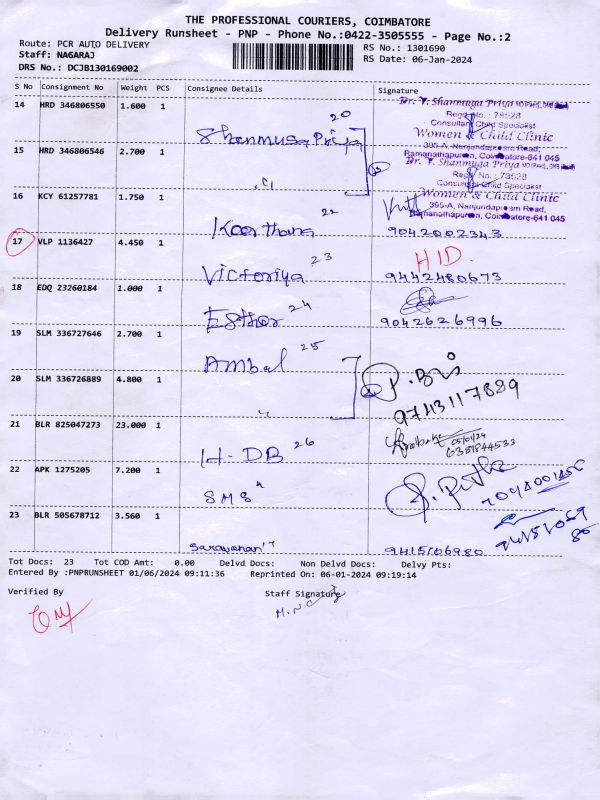 THE PROFESSIONAL COURIERS, COIMBATORE
Delivery Runsheet - PNP - Phone No.:0422-3505555 - Page No.:2
Route: PCR AUTO DELIVERY
RS No.: 1301690
Staff: NAGARAJ
RS Date: 06-Jan-2024
DRS No.: DCJB130169002
S No Consignment No Weight PCS Consignee Details Signature
14 HRD 346806550 1.600 1
20
Shanmuga Priya
Dr. Y. Shanmuga Priya
Regd No.: 78528
Consultant Child Specialist
Women & Child Clinic
395-A, Nanjundapuram Road,
Ramanathapuram, Coimbatore-641 045
15 HRD 346806546 2.700 1
Dr. Y. Shanmuga Priya
Regd No.: 78528
Consultant Child Specialist
Women & Child Clinic
395-A, Nanjundapuram Road,
Ramanathapuram, Coimbatore-641 045
16 KCY 61257781 1.750 1
Keerthana 22
9042002343
17 VLP 1136427 4.450 1
HID.
Victoriya 23
9442480673
18 EDQ 23260184 1.000 1
Esther 24
9042626996
19 SLM 336727646 2.700 1
Ambal 25
20 SLM 336726889 4.800 1
9743117889
21 BLR 825047273 23.000 1
H-DB 26
05/01/24
6381844533
22 APK 1275205 7.200 1
SMS
23 BLR 505678712 3.560 1
Saravanan
9415106980
Tot Docs: 23 Tot COD Amt: 0.00 Delvd Docs: Non Delvd Docs: Delvy Pts:
Entered By :PNPRUNSHEET 01/06/2024 09:11:36 Reprinted On: 06-01-2024 09:19:14
Verified By
Staff Signature